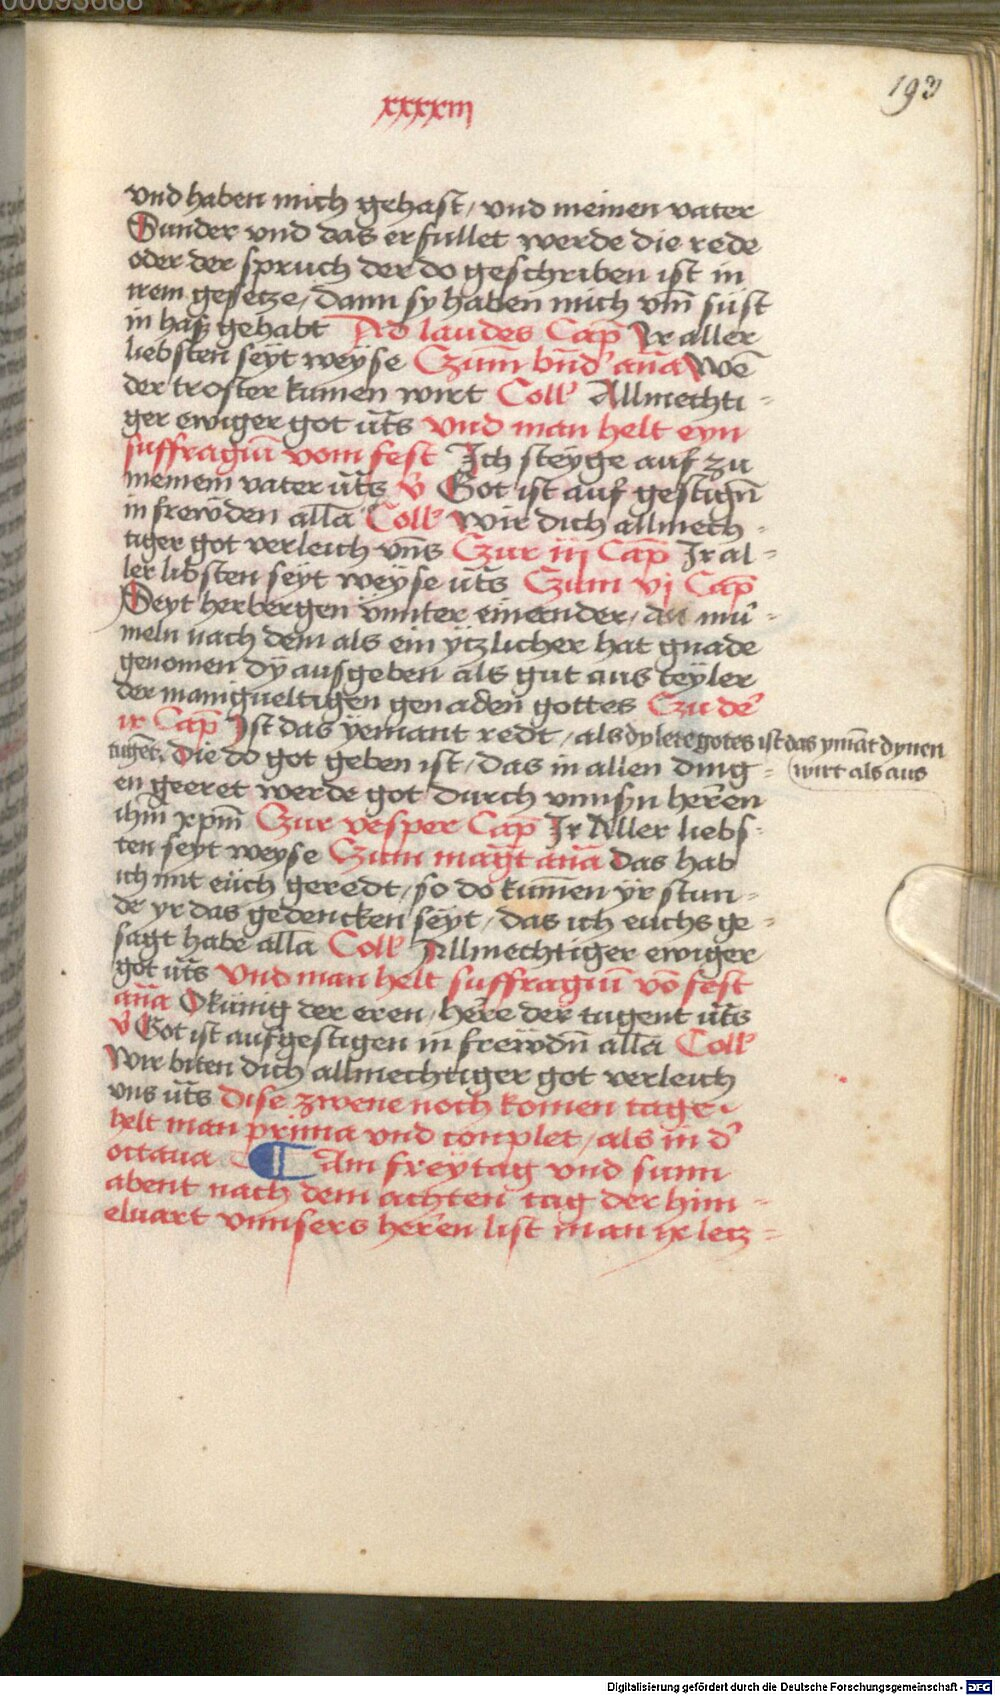 00093668
193
xxxxiii
vnd haben mich gehast / vnd meinen vater
Sunder vnd das erfullet werde die rede
oder der spruch der do geschriben ist in
irem gesetze / dann sy haben mich vm̄ süst
in hasz gehabt Ad laudes Cap̄ Ir aller
liebsten seyt weÿse Czum bn̄d' an̄a Wē
der troster kumen wirt Coll' Allmechti-
ger ewiger got ut̄s vnd man helt eyn
suffragiū vom fest Ich steyge auf zu
meinem vater ut̄s V̄ Got ist auf gestign̄
in freẅden all̄a Coll' Wir dich allmech-
tiger got verleich vn̄s Czur iij Cap̄ Ir al-
ler libsten seyt weÿse ut̄s Czum vj Cap̄
Seyt herbergen vnnter einennder / an mu-
meln nach dem als ein ÿtzlicher hat gnade
genomen dÿ ausgeben als gut aus teÿler
der manigueltigen genaden gottes Czu de'
ix Cap̄ Ist das ÿemant redt / als dy lere gotes ist das ymāt dynen
wirt als aus
tugēt. Die do got geben ist / das in allen ding-
en geeret werde got durch vnnsn̄ herren
ihm̄ xpm̄ Czur vesper Cap̄ Ir Aller liebs-
ten seyt weyse Czum maḡt an̄a das hab
ich mit eüch geredt / so do kum̄en ÿr stun-
de yr das gedencken seÿt / das ich euchs ge-
sagt habe all̄a Coll' Allmechtiger ewiger
got ut̄s Vnd man helt suffragiū vō fest
an̄a O künig der eren / here der tugent ut̄s
V̄ Got ist aufgestigen in freẅdn̄ all̄a Coll'
Wir biten dich allmechtiger got verleich
vns ut̄s Dise zwene noch komen tage
helt man prima vnd conplet / als in d'
octaua Am freÿtag vnd sunn
abent nach dem achten tag der him-
eluart vnnsers herren list man ix letz-
Digitalisierung gefördert durch die Deutsche Forschungsgemeinschaft - DFG